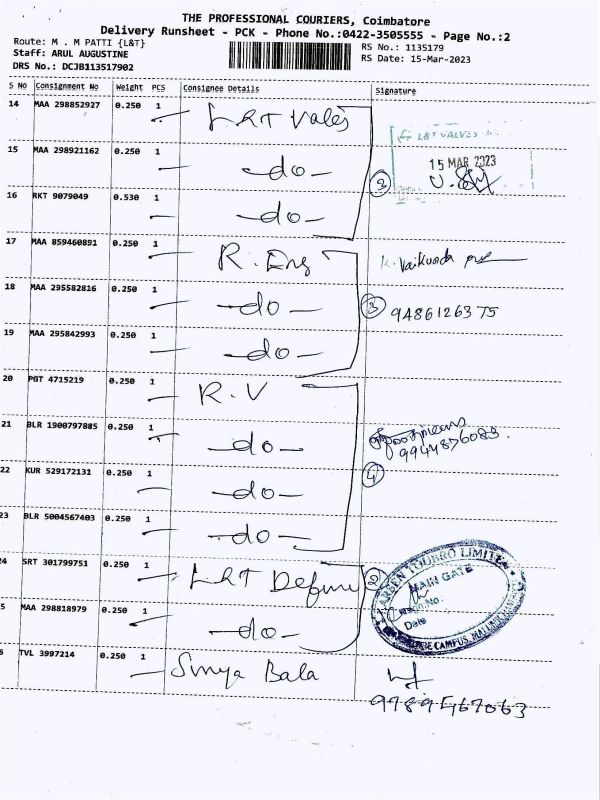 THE PROFESSIONAL COURIERS, Coimbatore
Delivery Runsheet - PCK - Phone No.:0422-3505555 - Page No.:2
Route: M . M PATTI {L&T}
RS No.: 1135179
Staff: ARUL AUGUSTINE
RS Date: 15-Mar-2023
DRS No.: DCJB113517902
S No Consignment No Weight PCS Consignee Details Signature
14 MAA 298852927 0.250 1 L&T Valves
L&T VALVES
15 MAR 2023
15 MAA 298921162 0.250 1 -do-
3
16 RKT 9079049 0.530 1 -do-
17 MAA 859460891 0.250 1 R. Eng
K. Vaikunda
18 MAA 295582816 0.250 1 -do- 3 9486126375
19 MAA 295842993 0.250 1 -do-
20 PGT 4715219 0.250 1 R.V
21 BLR 1900797885 0.250 1 -do-
9944876083.
22 KUR 529172131 0.250 1 -do- 4
23 BLR 5004567403 0.250 1 -do-
24 SRT 301799751 0.250 1 L&T Defence 2
LARSEN TOUBRO LIMITED
MAIN GATE
Regn.No.
Date
CAMPUS,
5 MAA 298818979 0.250 1 -do-
6 TVL 3997214 0.250 1 Surya Bala